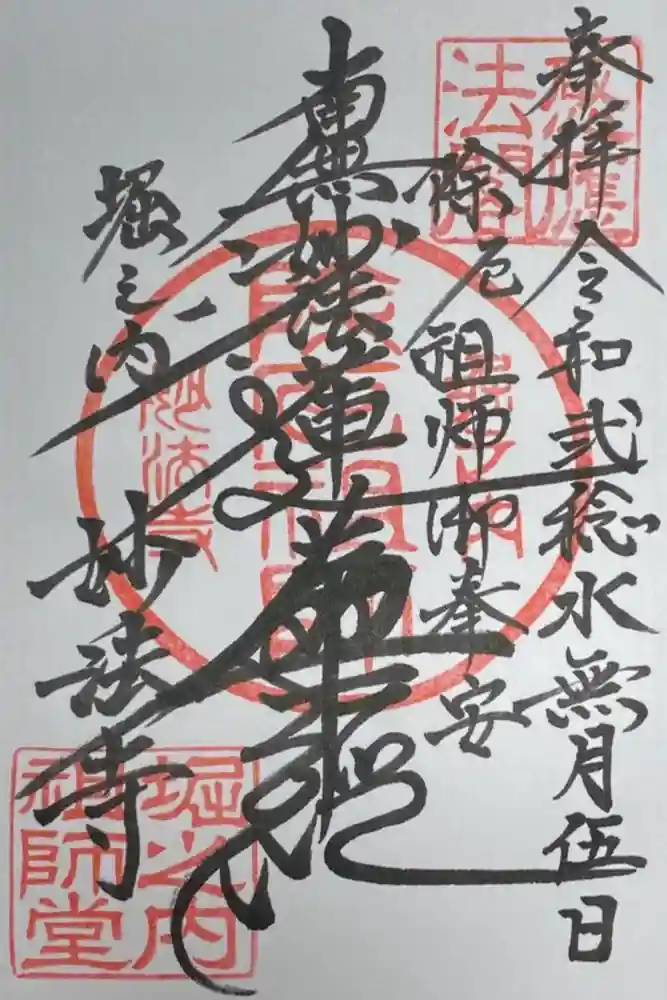 奉拝 令和弐稔水無月伍日
除厄祖師御奉安
南無妙法蓮華経
堀之内
妙法寺
法閣
除厄祖師
妙法寺
堀之内
祖師堂